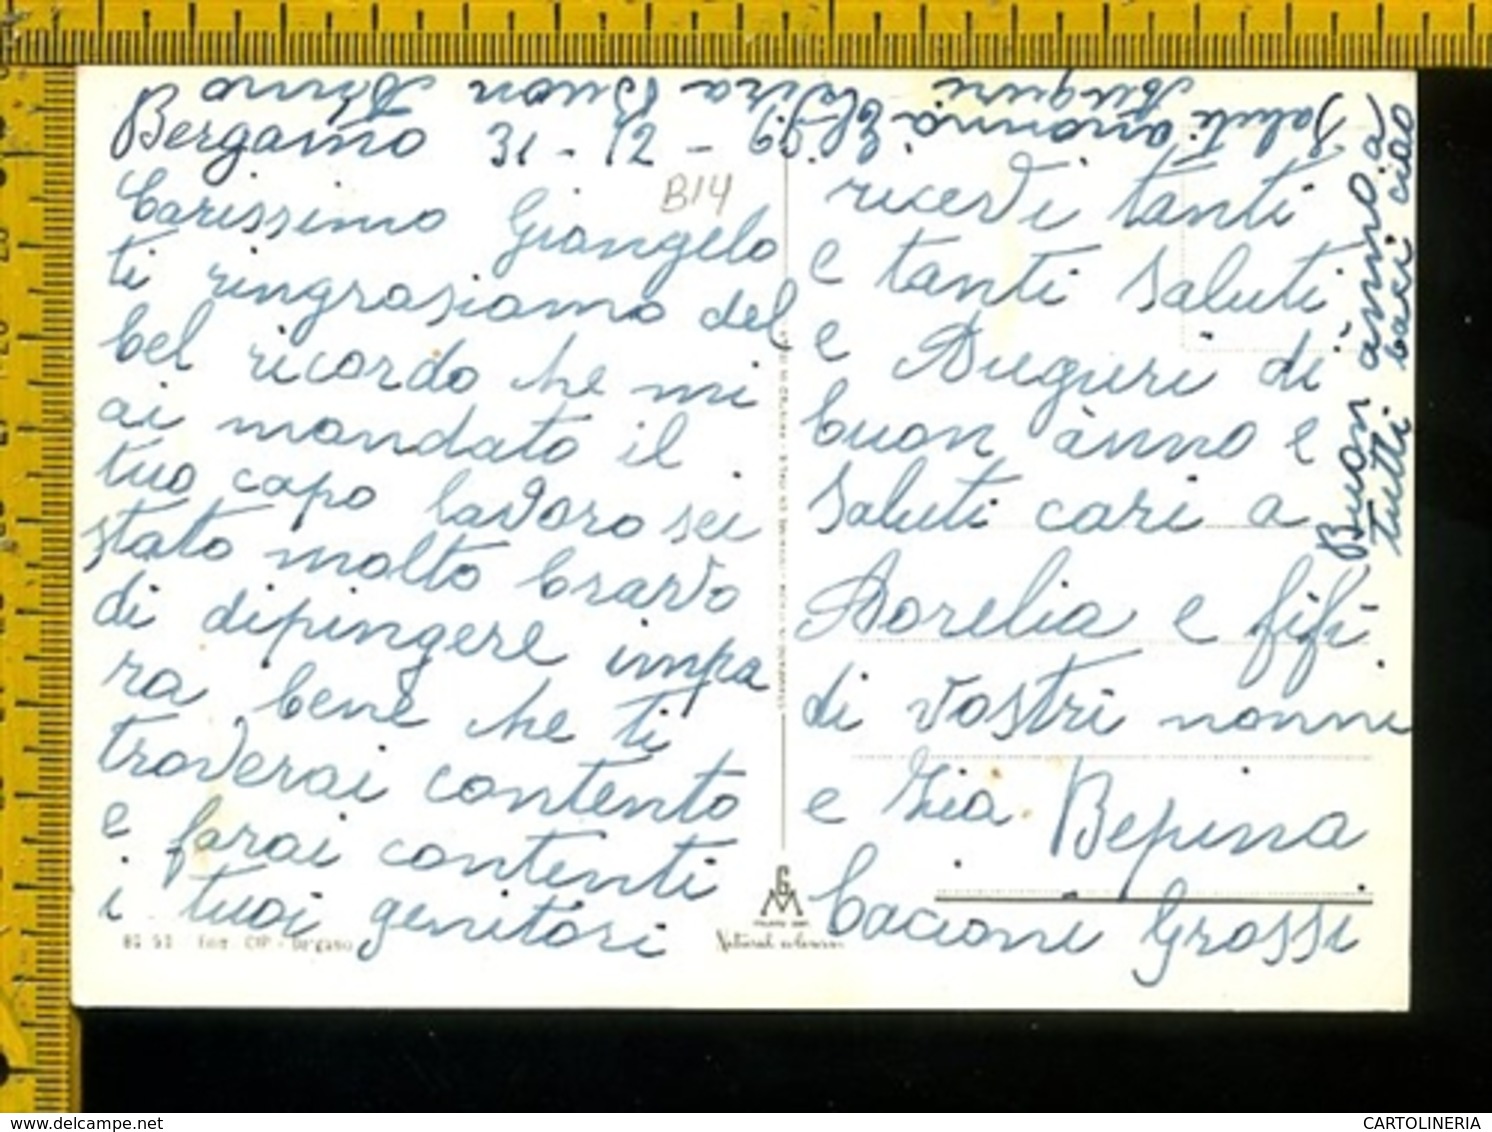 Bergamo 31 - 12 - 69
B14
Carissimo Giangelo
ti ringrasiamo del
bel ricordo che mi
ai mandato il
tuo capo lavoro sei
stato molto bravo
di dipingere impa
ra bene che ti
troverai contento
e farai contenti
i tuoi genitori
ricevi tanti
e tanti saluti
e Auguri di
buon anno e
saluti cari a
Aorelia e fifi
di vostri nonni
e Zia Bepina
bacioni grossi
Buon anno a
tutti baci ciao
Saluti a nonna Elvira Buon Anno
Auguri
BG 50 Ediz. CYP - Bergamo
Natural colour
CARTOLINERIA